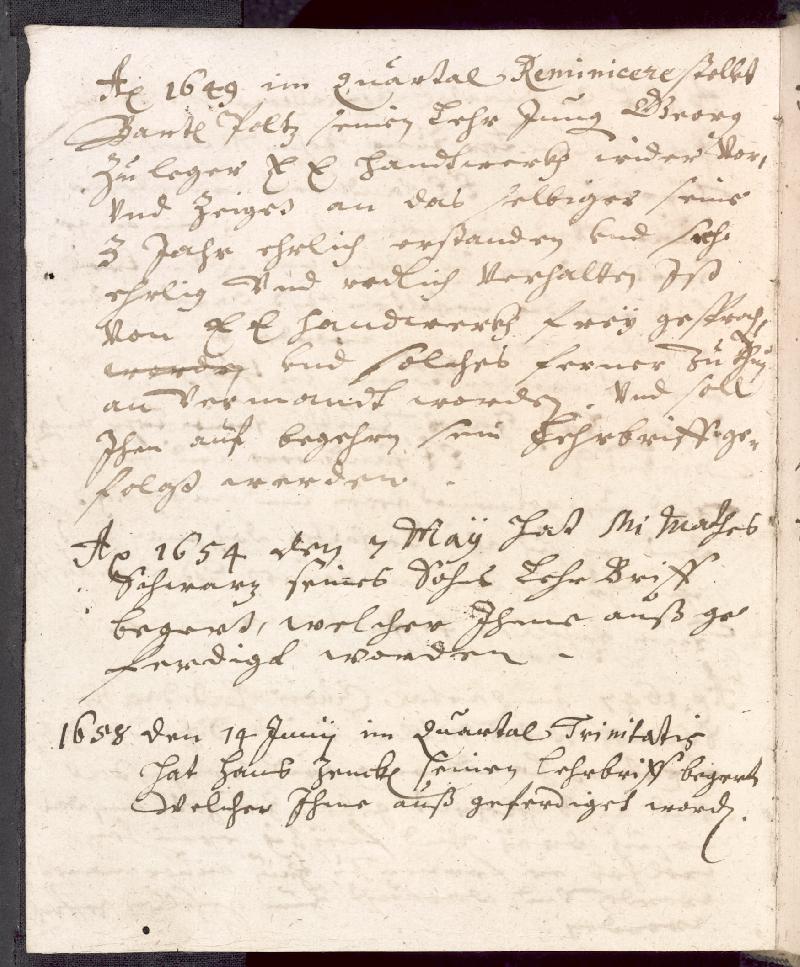 Ao 1649 im Quartal Reminicere stellet
Bartl Poltz seinen Lehr Jung Georg
Zuleger E E Handtwerkh wider vor,
Vnd Zeiget an das selbiger seine
3 Jahr ehrlich erstanden Vnd sich
ehrlig Vnd redlich Verhalten Ist
Von E E Handwerkh freÿ gesproch,
worden Vnd solches ferner zu
an Vermandt worden. Vnd soll
Ihm auf begehrn sein Lehrbriff ge,
folgt werden.
Ao 1654 den 7 Maÿ hat Mathes
Schwarz seines Sohns Lehr Briff
begert, welcher Ihme auß ge
ferdigt worden -
1658 den 14 Junij im Quartal Trinitatis
hat Hans Zenckl seinen Lehrbriff begert
Welcher Ihme auß geferdiget word.